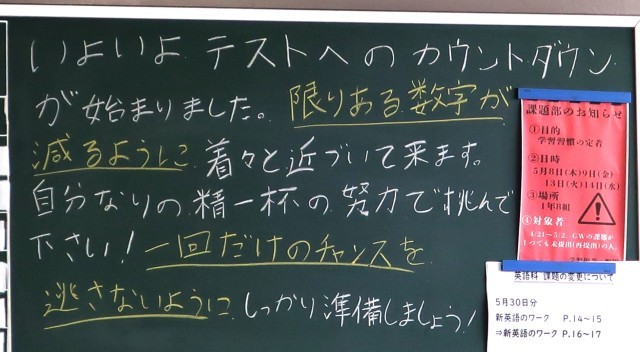 いよいよ テストへの カウントダウン
が始まりました。限りある数字が
減るように 着々と近づいて来ます。
自分なりの精一杯の努力で挑んで
下さい! 一回だけのチャンスを
逃さないように しっかり準備しましょう!
課題部のお知らせ
①目的
学習習慣の定着
②日時
5月8日(木)9日(金)
13日(火)14日(水)
③場所
1年8組
④対象者
4/21~5/2、GWの課題が
1つでも未提出(再提出)の人
英語科 課題の変更について
5月30日分
新英語のワーク P.14~15
⇒新英語のワーク P.16~17